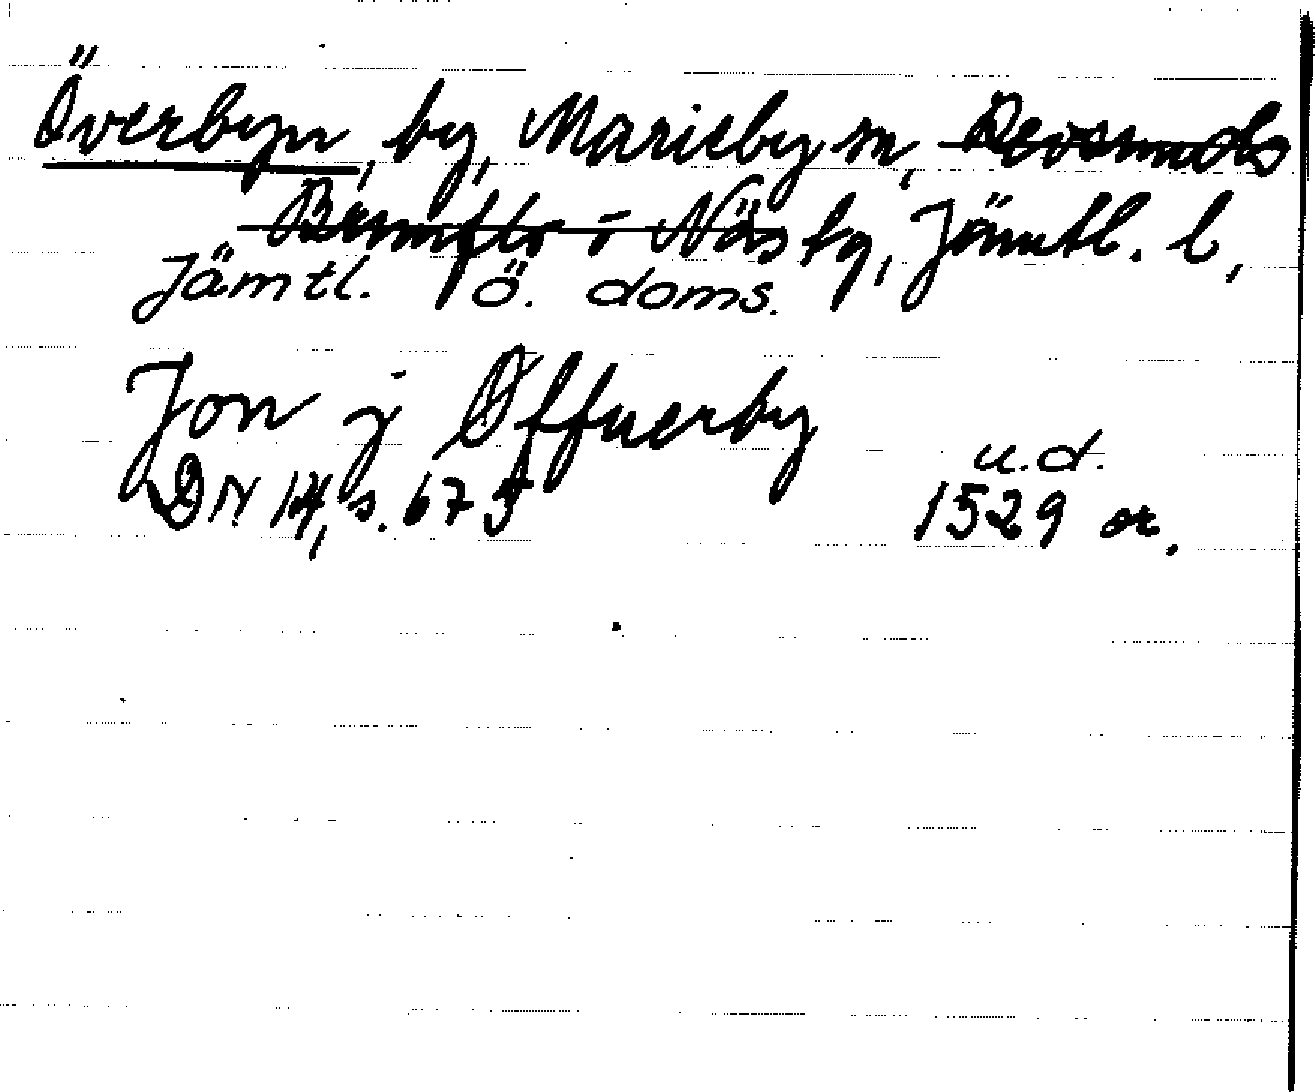 Överbyn, by, Marieby sn, Revsunds
Brunflo o Näs tg, Jämtl. l,
Jämtl. ö. doms.
Jon j Øffuerby
DN 14, s. 675 u.d.
1529 or.